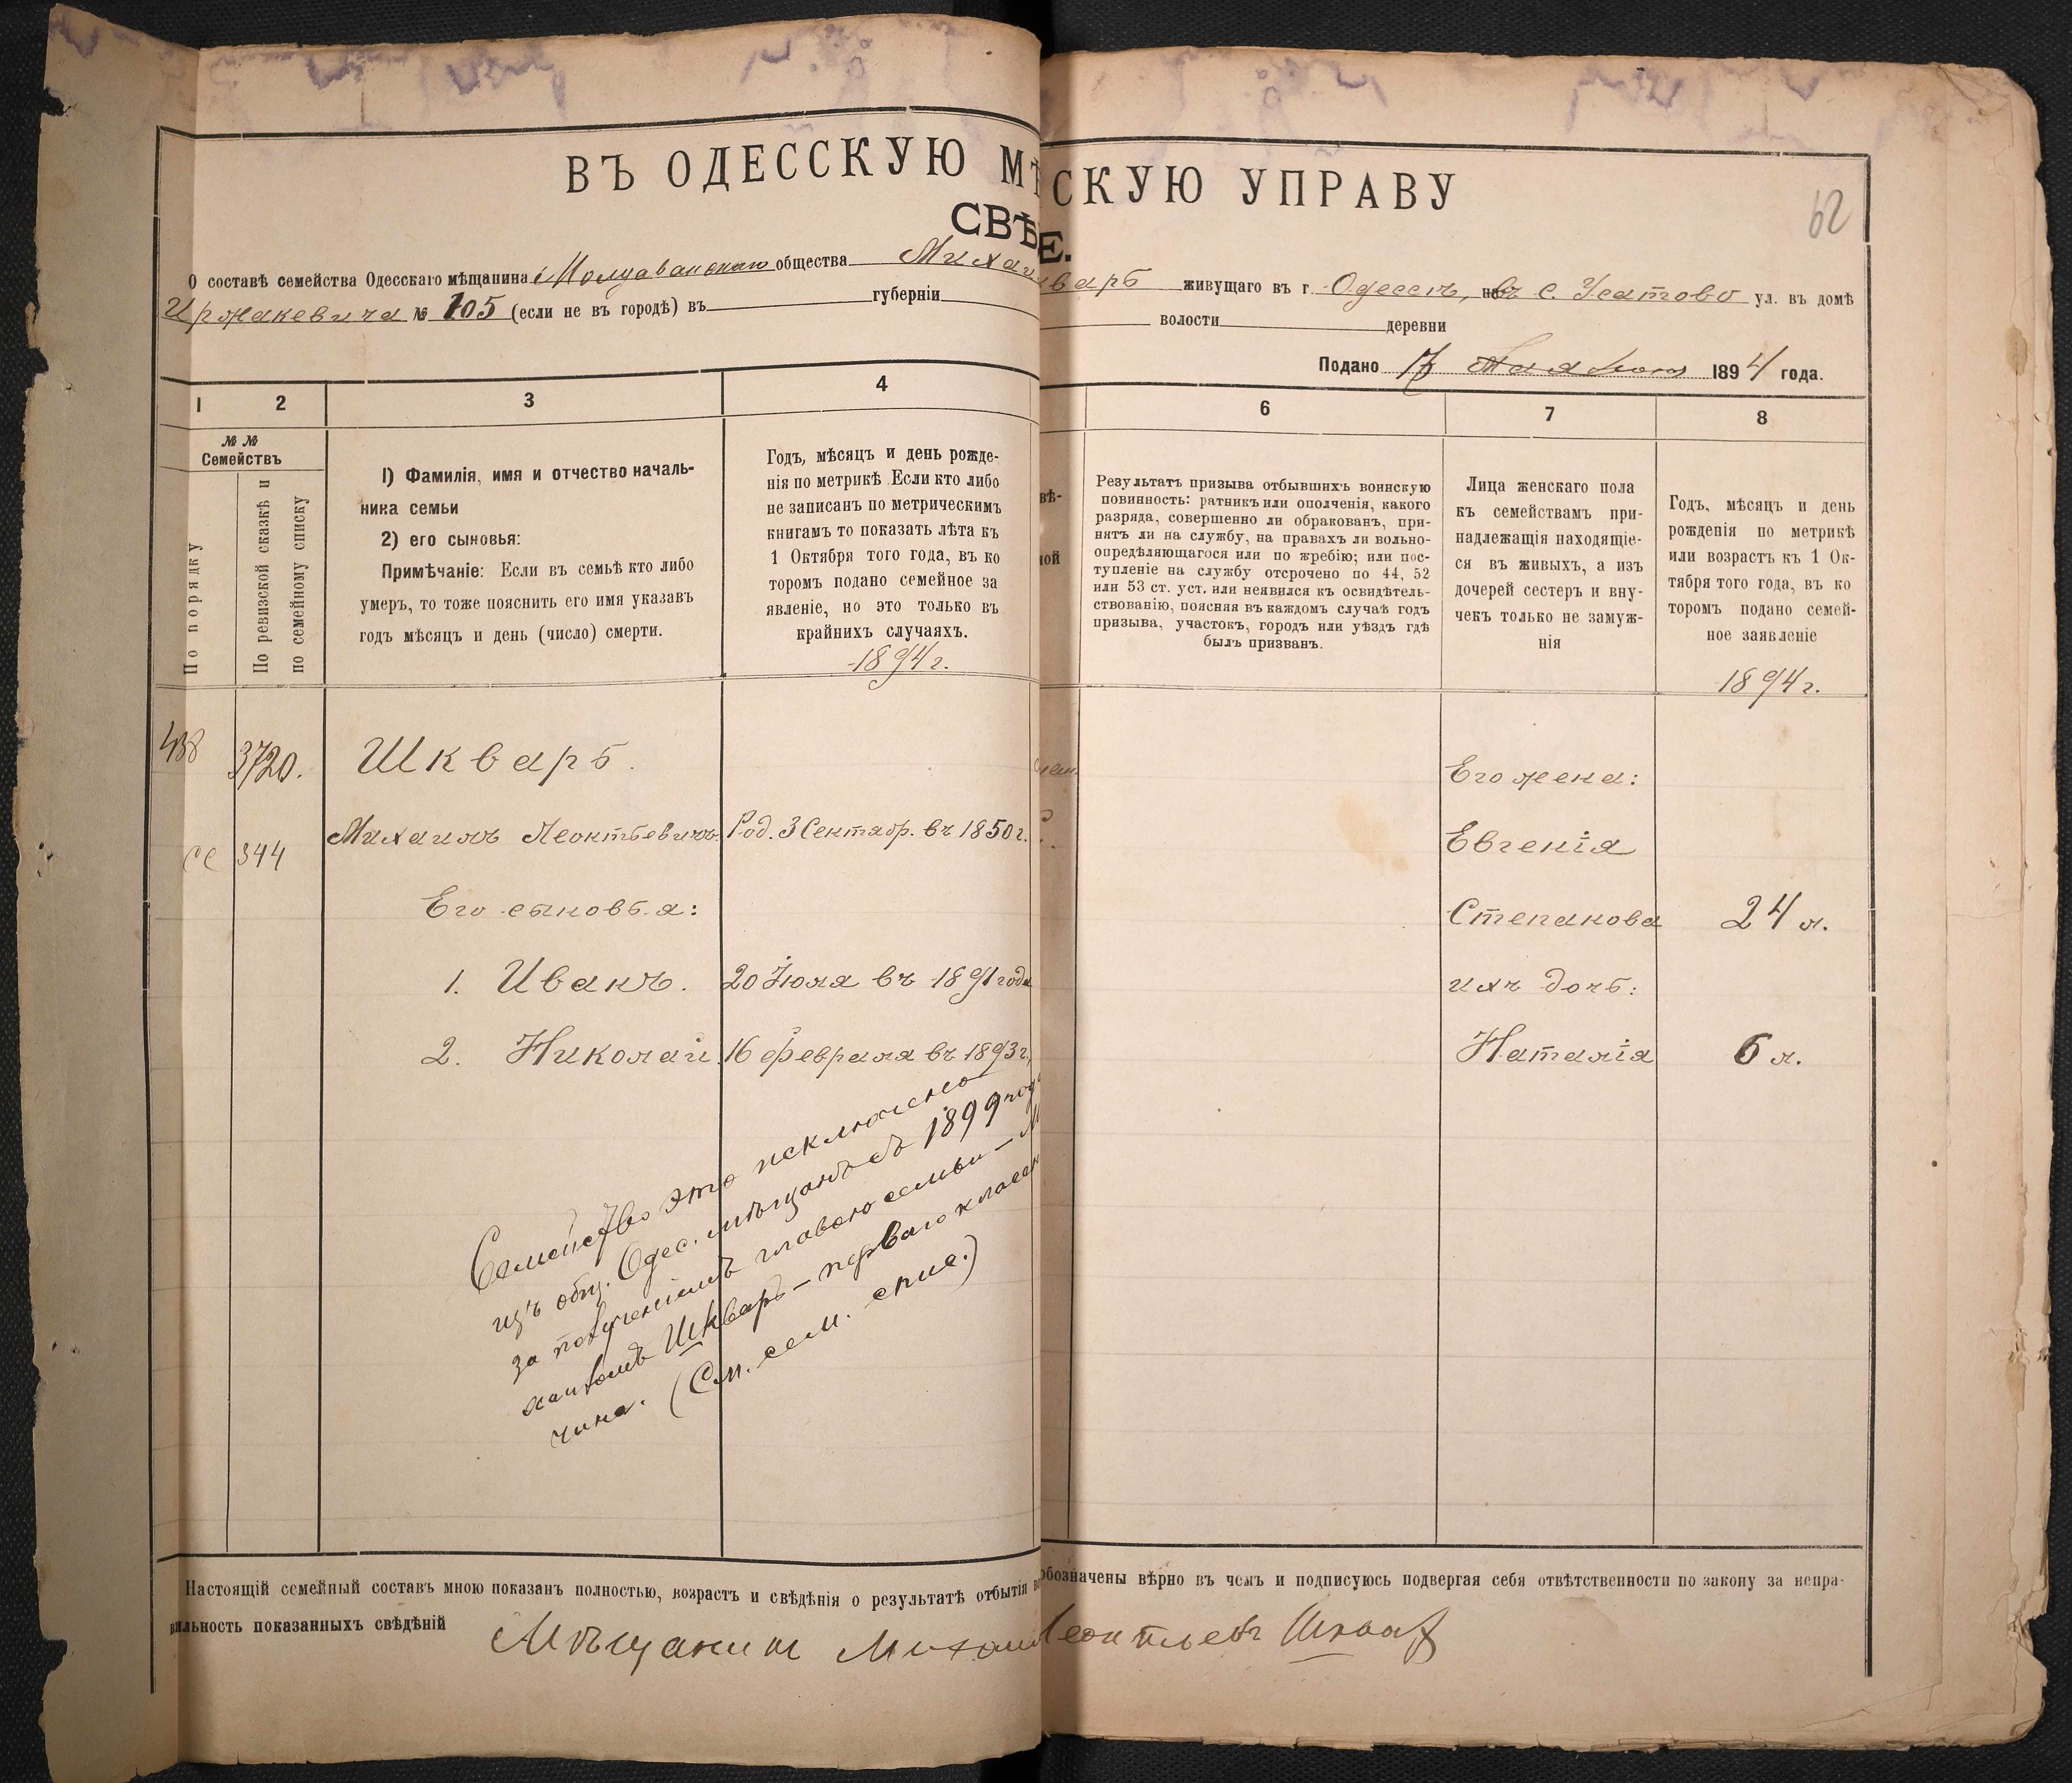 ВЪ ОДЕССКУЮ МѢ
СКУЮ УПРАВУ
62
СВѢ
Е.
О составѣ семейства Одесскаго мѣщанина Молдаванскаго общества Михаи
варь живущаго въ г. Одессѣ, на въ с. Усатово ул. въ домѣ
Иржакевича № 105 (если не въ городѣ) въ губерніи
волости деревни
Подано 17 Мая 1894 года.
1 2 3 4
6 7 8
№ №
Семействъ
По порядку
По ревизской сказкѣ и
по семейному списку
1) Фамилія, имя и отчество началь-
ника семьи
2) его сыновья:
Примѣчаніе: Если въ семьѣ кто либо
умеръ, то тоже пояснить его имя указавъ
годъ мѣсяцъ и день (число) смерти.
Годъ, мѣсяцъ и день рожде-
нія по метрикѣ Если кто либо
не записанъ по метрическимъ
книгамъ то показать лѣта къ
1 Октября того года, въ ко
торомъ подано семейное за
явленіе, но это только въ
крайнихъ случаяхъ.
1894 г.
вѣ-
ной
Результатъ призыва отбывшихъ воинскую
повинность: ратникъ или ополченія, какого
разряда, совершенно ли обракованъ, при-
нятъ ли на службу, на правахъ ли вольно-
опредѣляющагося или по жребію; или пос-
тупленіе на службу отсрочено по 44, 52
или 53 ст. уст. или неявился къ освидѣтель-
ствованію, поясняя въ каждомъ случаѣ годъ
призыва, участокъ, городъ или уѣздъ гдѣ
былъ призванъ.
Лица женскаго пола
къ семействамъ при-
надлежащія находящіе-
ся въ живыхъ, а изъ
дочерей сестеръ и вну-
чекъ только не замуж-
нія
Годъ, мѣсяцъ и день
рожденія по метрикѣ
или возрастъ къ 1 Ок-
тября того года, въ ко
торомъ подано семей-
ное заявленіе
1894 г.
438 3720. Шкварь.
Его жена:
се 344 Михаилъ Леонтьевичъ. Род. 3 Сентябр. въ 1850 г.
Евгенія
Его сыновья:
Степанова 24 л.
1. Иванъ. 20 Іюля въ 1891 года
ихъ дочь:
2. Николай. 16 Февраля въ 1893 г.
Наталія 6 л.
Семейство это исключено
изъ общ. Одес. мѣщанъ съ 1899 года
за полученіемъ главою семьи – М
хаиломъ Шкварь – перваго классн
чина. (См. сем. спис.)
Настоящій семейный составъ мною показанъ полностью, возрастъ и свѣдѣнія о результатѣ отбытія
обозначены вѣрно въ чемъ и подписуюсь подвергая себя отвѣтственности по закону за непра-
вильность показанныхъ свѣдѣній
Мѣщанин Михаи
Леонтьевъ Шкварь